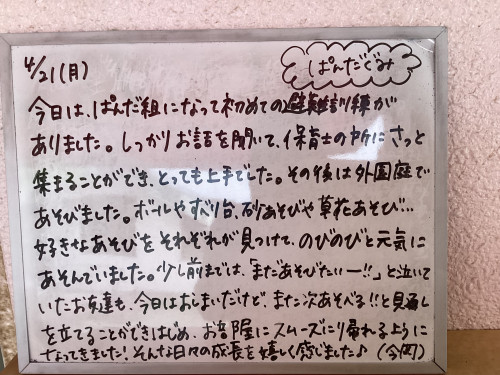 4/21(月)
ぱんだぐみ
今日は、ぱんだ組になって初めての避難訓練が
ありました。しっかりお話を聞いて、保育士の所にさっと
集まることができ、とっても上手でした。その後は外国庭で
あそびました。ボールやすべり台、砂あそびや草花あそび…
好きなあそびをそれぞれが見つけて、のびのびと元気に
あそんでいました。少し前までは、「まだあそびたいー!!」と泣いて
いたお友達も、今日はおしまいだけど、また次あそべる!!と見通し
を立てることができはじめ、お部屋にスムーズに帰れるように
なってきました!そんな日々の成長を嬉しく感じました♪(今岡)